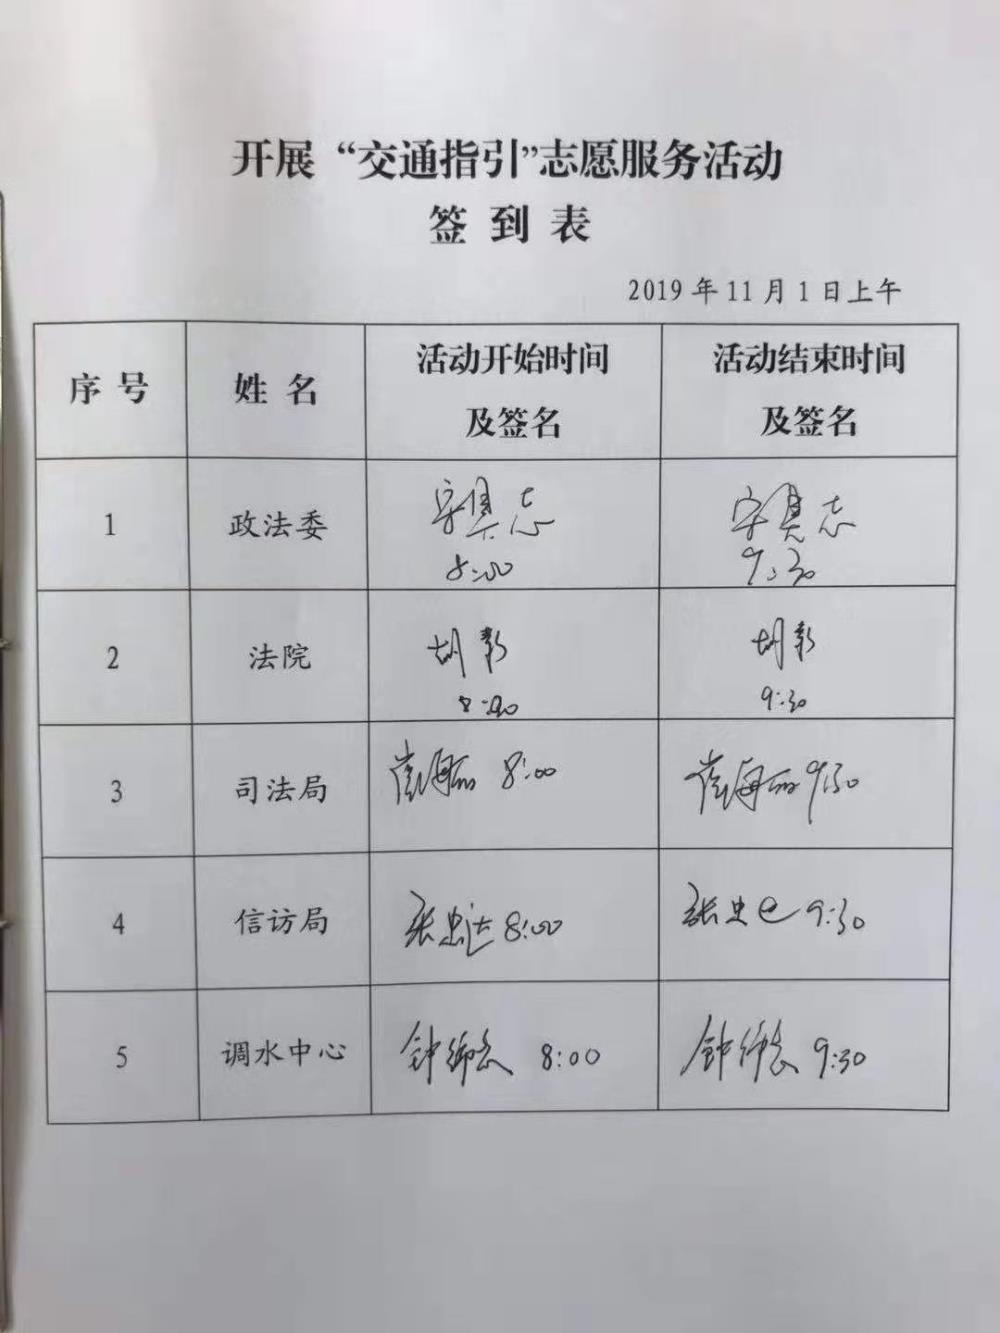 开展“交通指引”志愿服务活动
签到表
2019年11月1日上午
序号 姓名 活动开始时间 活动结束时间
及签名 及签名
1 政法委 志 志
8:00 9:30
2 法院 胡 胡
8:00 9:30
3 司法局 8:00 9:30
4 信访局 张忠 8:00 张忠 9:30
5 调水中心 钟 8:00 钟 9:30